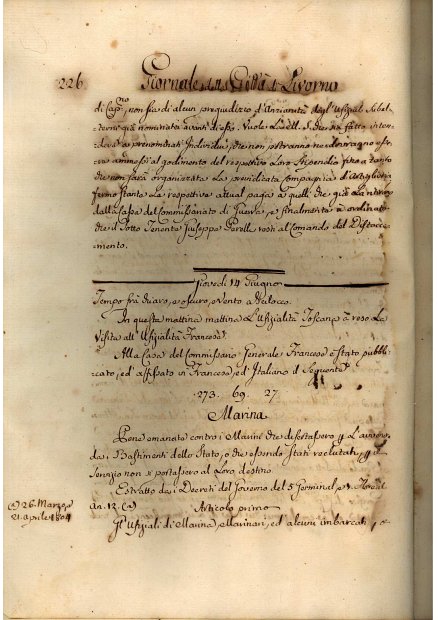 226 Giornale della Città di Livorno
di Capno, non sia di alcun pregiudizio d'Anzianità degl'Ufiziali Subal-
terni già nominati avanti di esso. Vuole L'Ecell. S. che sia fatto inten-
dere a prenominati Individui, che non potranno ne dovranno es-
sere ammessi al godimento del respettivo Loro stipendio fino a tanto
che non sarà organizzata La precitata Compagnia d'Artiglieria
ferme stante Le respettive attual paga a quelli che già La ritirano
dalla Cassa del Commissariato di Guerra, e finalmente à ordinato
che il Sotto Tenente Giuseppe resti al Comando del Distacca-
mento.
Giovedì 14 Giugno
Tempo frà chiaro, e oscuro, e vento a Scilocco.
In questa mattina mattina L'Ufizialità Toscana à reso La
Visita all'Ufizialità Francese.
Alla Casa del Commissario Generale Francese è stato pubbli-
cato, ed affissato in Francese ed Italiano il Seguente
273. 69. 27.
Marina
Pene emanate contro i Marini che disertassero
da i Bastimenti dello Stato, o che essendo stati reclutati, il
Servizio non si portassero al Loro destino
Estratto da i Decreti del Governo del 5 Germinal, e 1. Floreal
An. 12. (a)
(a) 26. Marzo, e
21. aprile 1804
Articolo primo
Gl'Ufiziali di Marina, Marinari, ed alcuni imbarcati, o